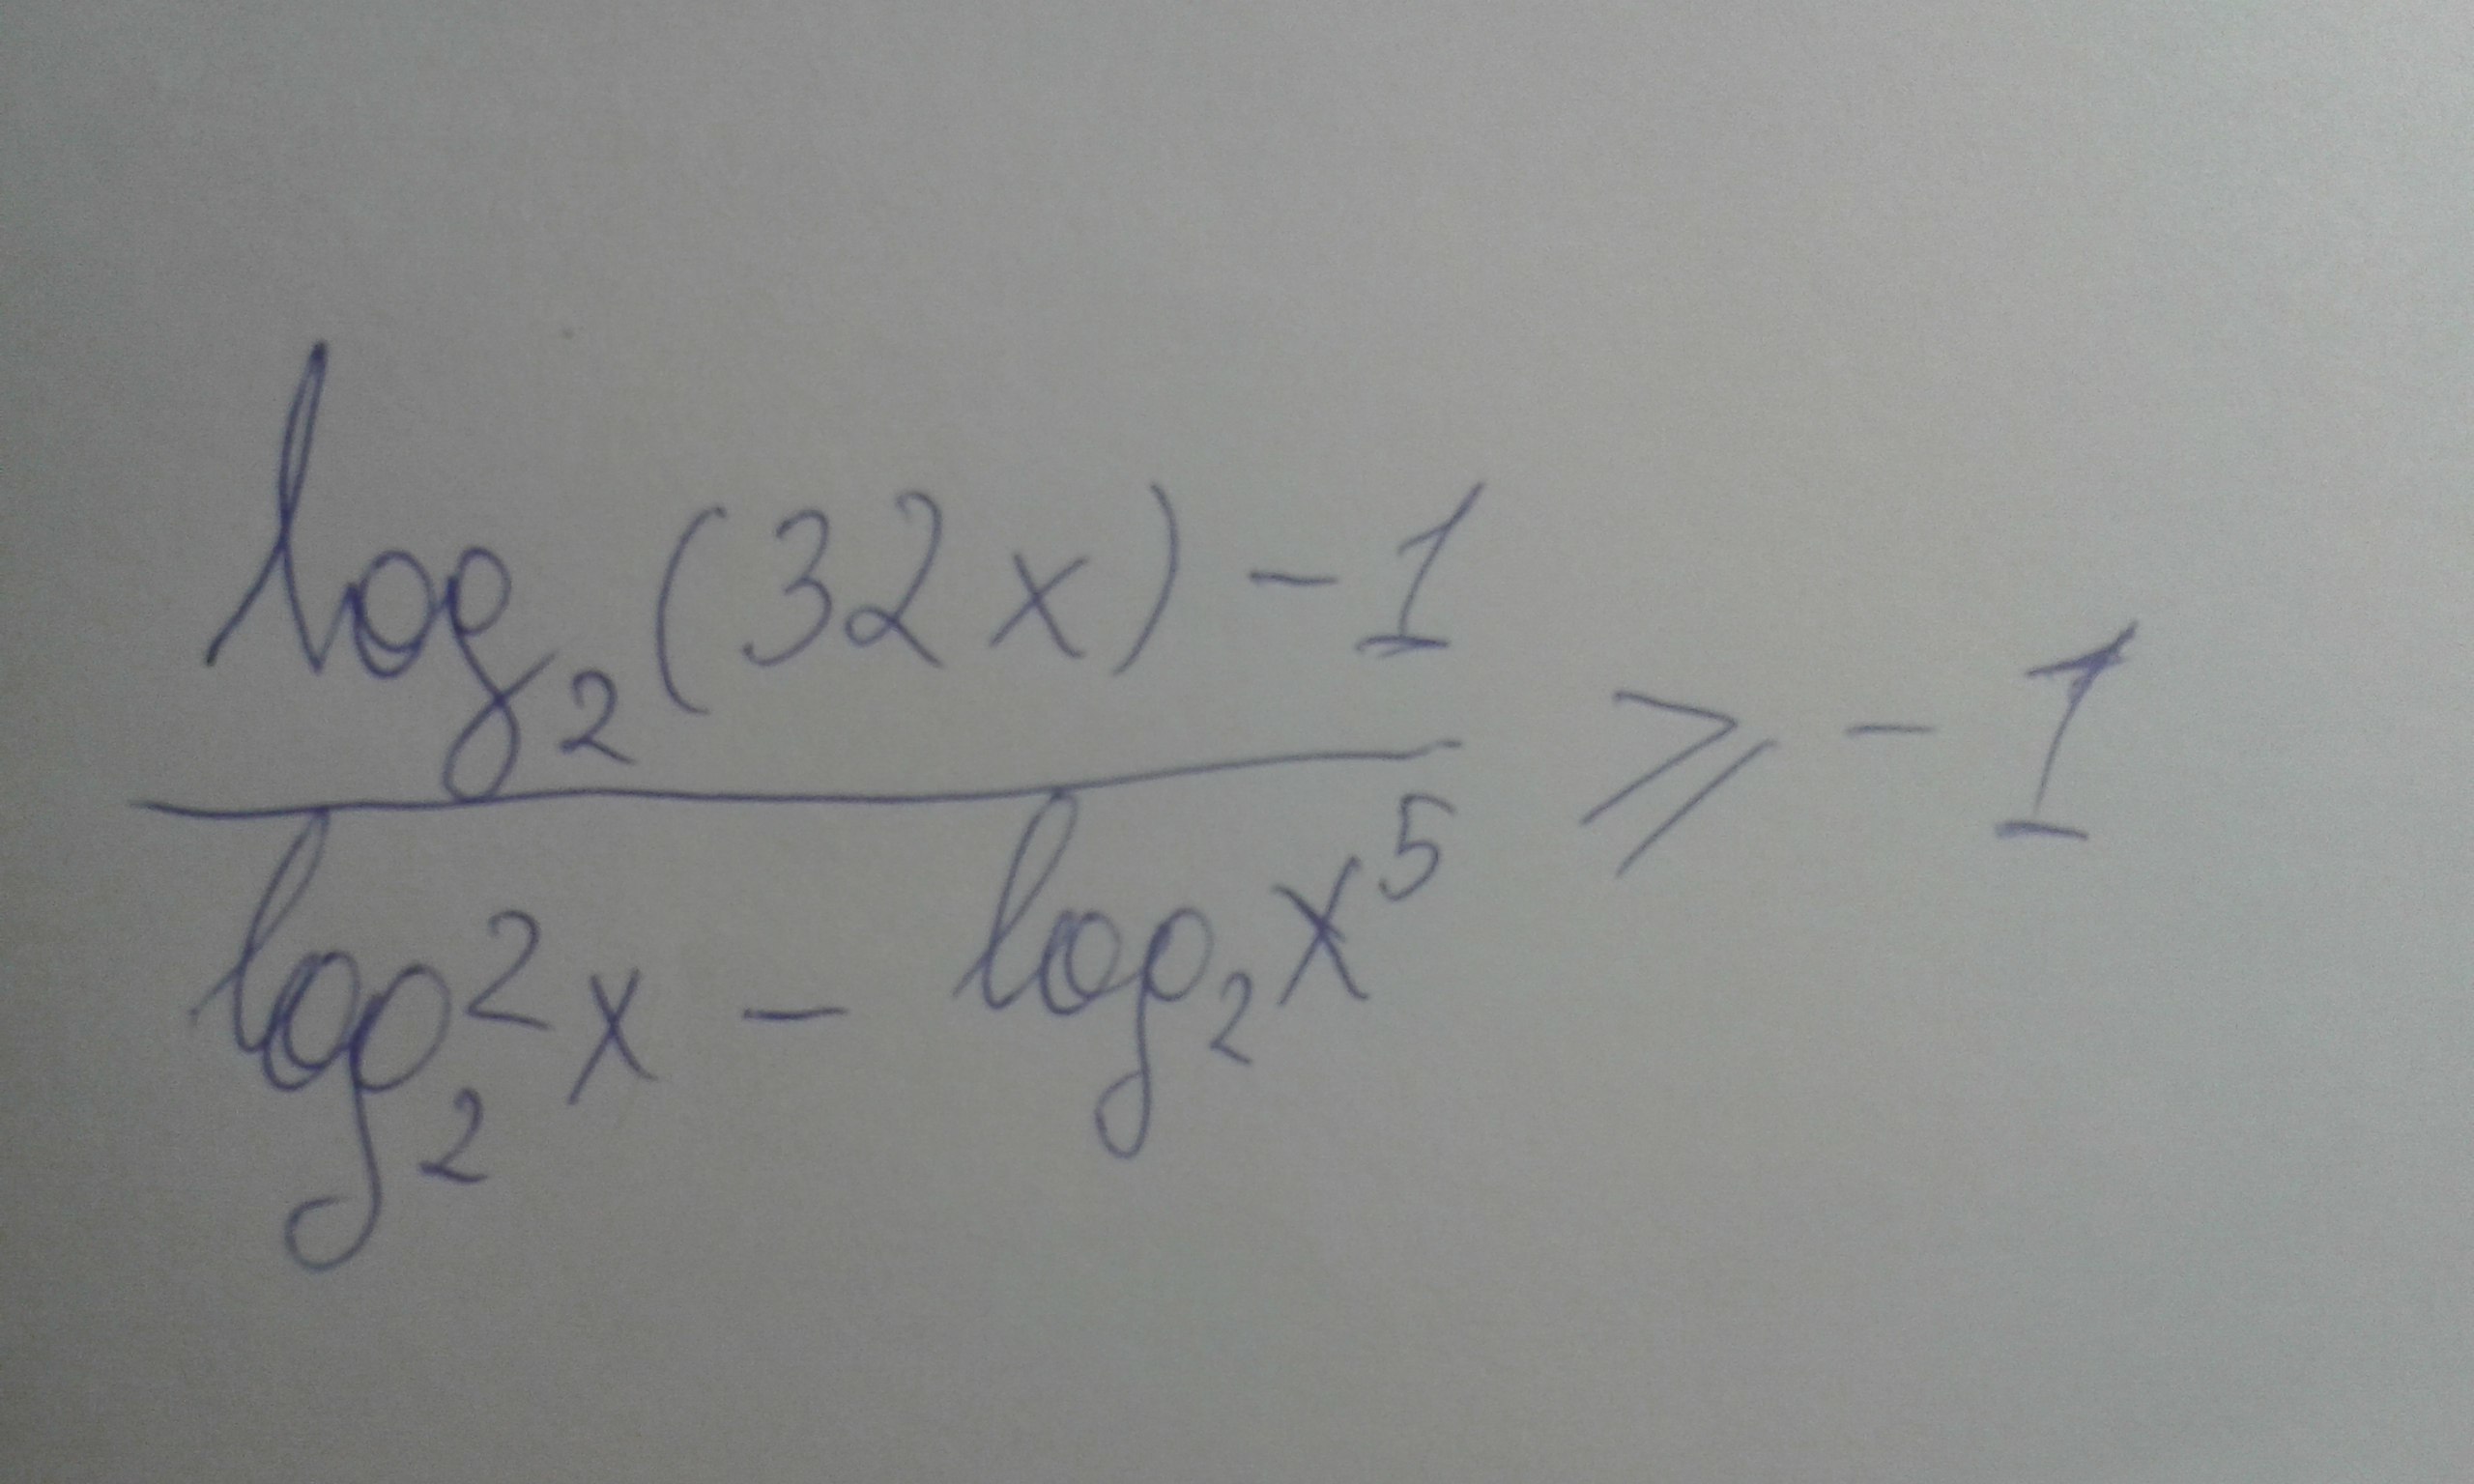 log₂(32x) - 1
⩾ - 1
log₂²x - log₂x⁵